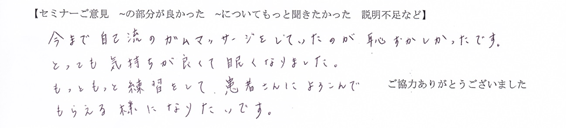 【セミナーご意見　~の部分が良かった　~についてもっと聞きたかった　説明不足など】
今まで自己流のガムマッサージをしていたのが恥ずかしかったです。
とっても気持ちが良くて眠くなりました。
もっともっと練習をして、患者さんによろこんで
もらえる様になりたいです。
ご協力ありがとうございました